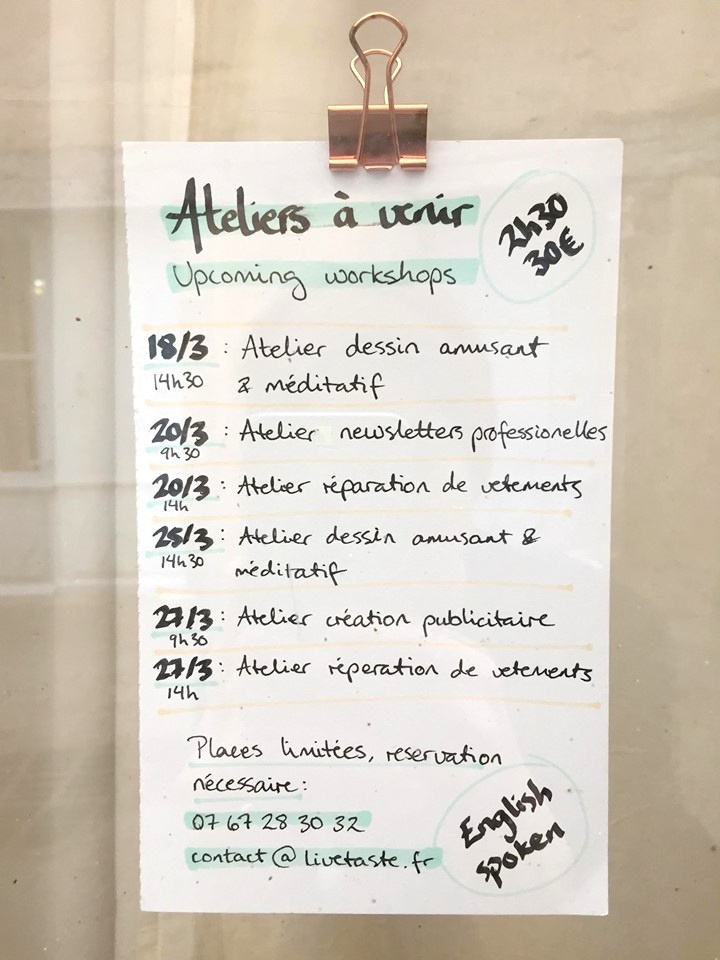 Ateliers à venir
2h30
30€
Upcoming workshops
18/3 : Atelier dessin amusant
14h30 & méditatif
20/3 : Atelier newsletters professionelles
9h30
20/3 : Atelier réparation de vetements
14h
25/3 : Atelier dessin amusant &
14h30 méditatif
27/3 : Atelier création publicitaire
9h30
27/3 : Atelier réperation de vetements
14h
Places limitées, reservation
nécessaire :
07 67 28 30 32
contact@livetaste.fr
English
spoken